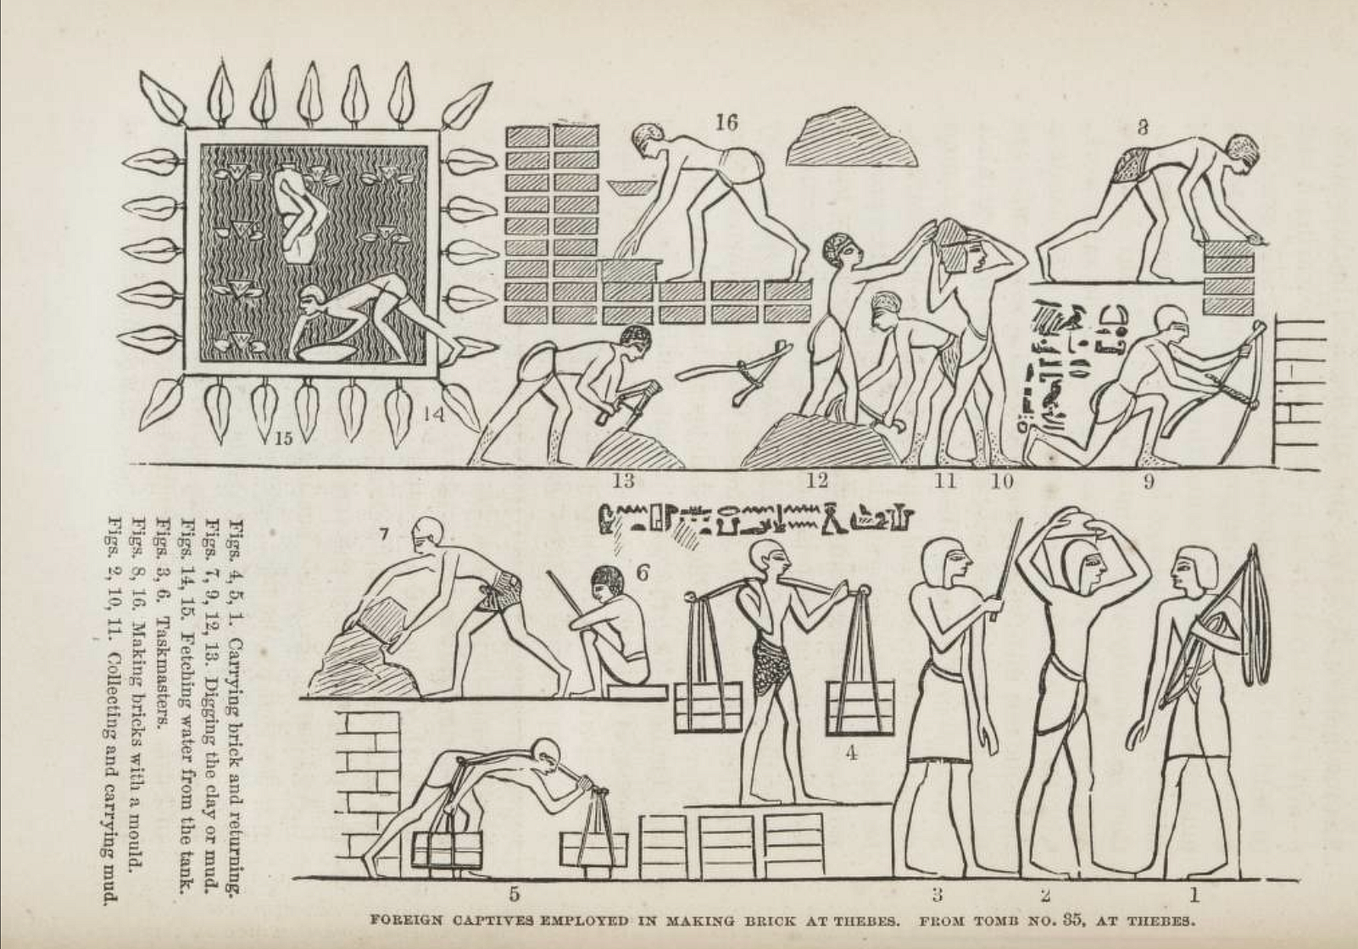 16
8
14
15
13
12
11
10
9
7
6
4
5
3
2
1
Figs. 4, 5, 1. Carrying brick and returning.
Figs. 7, 9, 12, 13. Digging the clay or mud.
Figs. 14, 15. Fetching water from the tank.
Figs. 3, 6. Taskmasters.
Figs. 8, 16. Making bricks with a mould.
Figs. 2, 10, 11. Collecting and carrying mud.
FOREIGN CAPTIVES EMPLOYED IN MAKING BRICK AT THEBES. FROM TOMB NO. 35, AT THEBES.